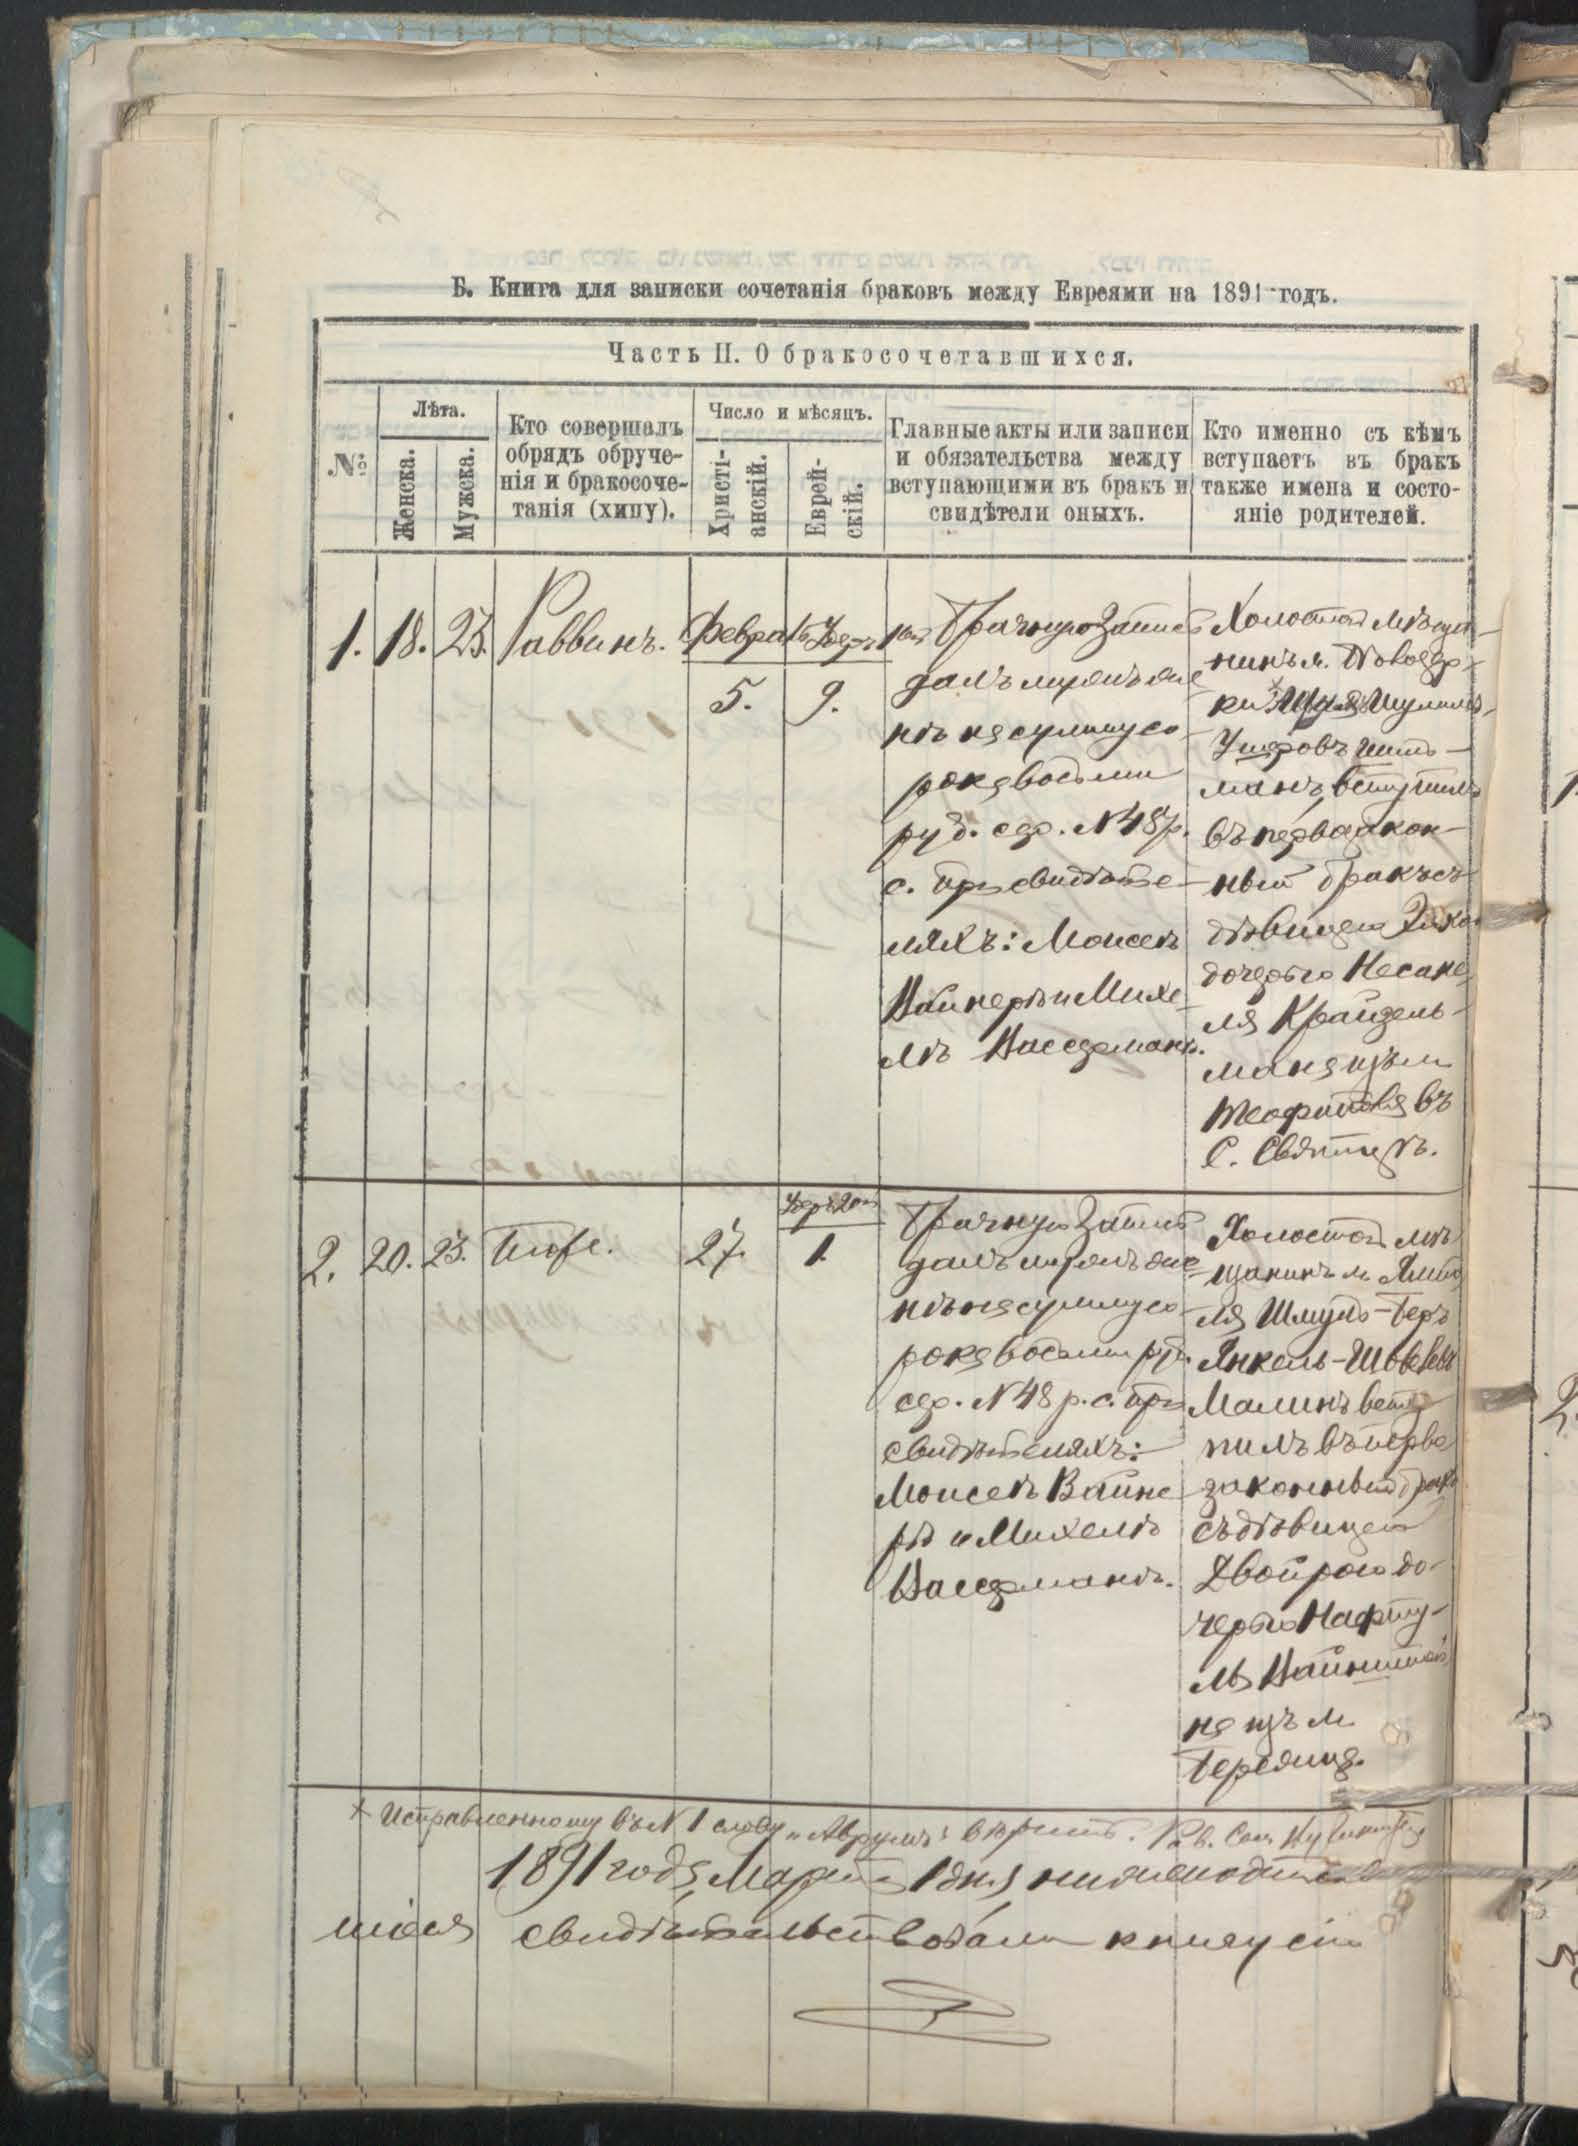 Б. Книга для записки сочетанія браковъ между Евреями на 1891 годъ.
Часть II. О бракосочетавшихся.
№
Лѣта.
Женска.
Мужска.
Кто совершалъ
обрядъ обруче-
нія и бракосоче-
танія (хипу).
Число и мѣсяцъ.
Христі-
анскій.
Еврей-
скій.
Главные акты или записи
и обязательства между
вступающими въ бракъ и
свидѣтели оныхъ.
Кто именно съ кѣмъ
вступаетъ въ бракъ
также имена и состо-
яніе родителей.
1. 18. 23. Раввинъ.
5. 9.
Брачную запись
далъ мужъ же-
нѣ на сумму со-
рока восьми
руб. сер. N 48 р.
с. при свидѣте-
ляхъ: Моисеѣ
Вайнерѣ и Михе-
лѣ Вассерманѣ.
Холостой мѣща-
нинъ м.
Шулимъ
вступилъ
въ первозакон-
ный бракъ съ
дѣвицею
дочерью
ля Крайзель-
мана изъ м
въ
с.
2. 20. 23. Тоже.
27. 1.
Брачную запись
далъ мужъ же-
нѣ на сумму со-
рока восьми руб.
сер. N 48 р. с. при
свидѣтеляхъ:
Моисеѣ Вайне-
рѣ и Михелѣ
Вассерманѣ.
Холостой мѣ-
щанинъ м. Ямпо
ля Шмуль-Беръ
Янкель-
Малинъ всту
пилъ въ перво
законный бракъ
съ дѣвицею
Двойрою до-
черью Нафту-
лы Вайнштей
на изъ м.
х Исправленному въ N 1 слову „Аврумъ" вѣрить. Рав.
1891 года Марта 1 дня,
свидѣтельствовали книгу сію